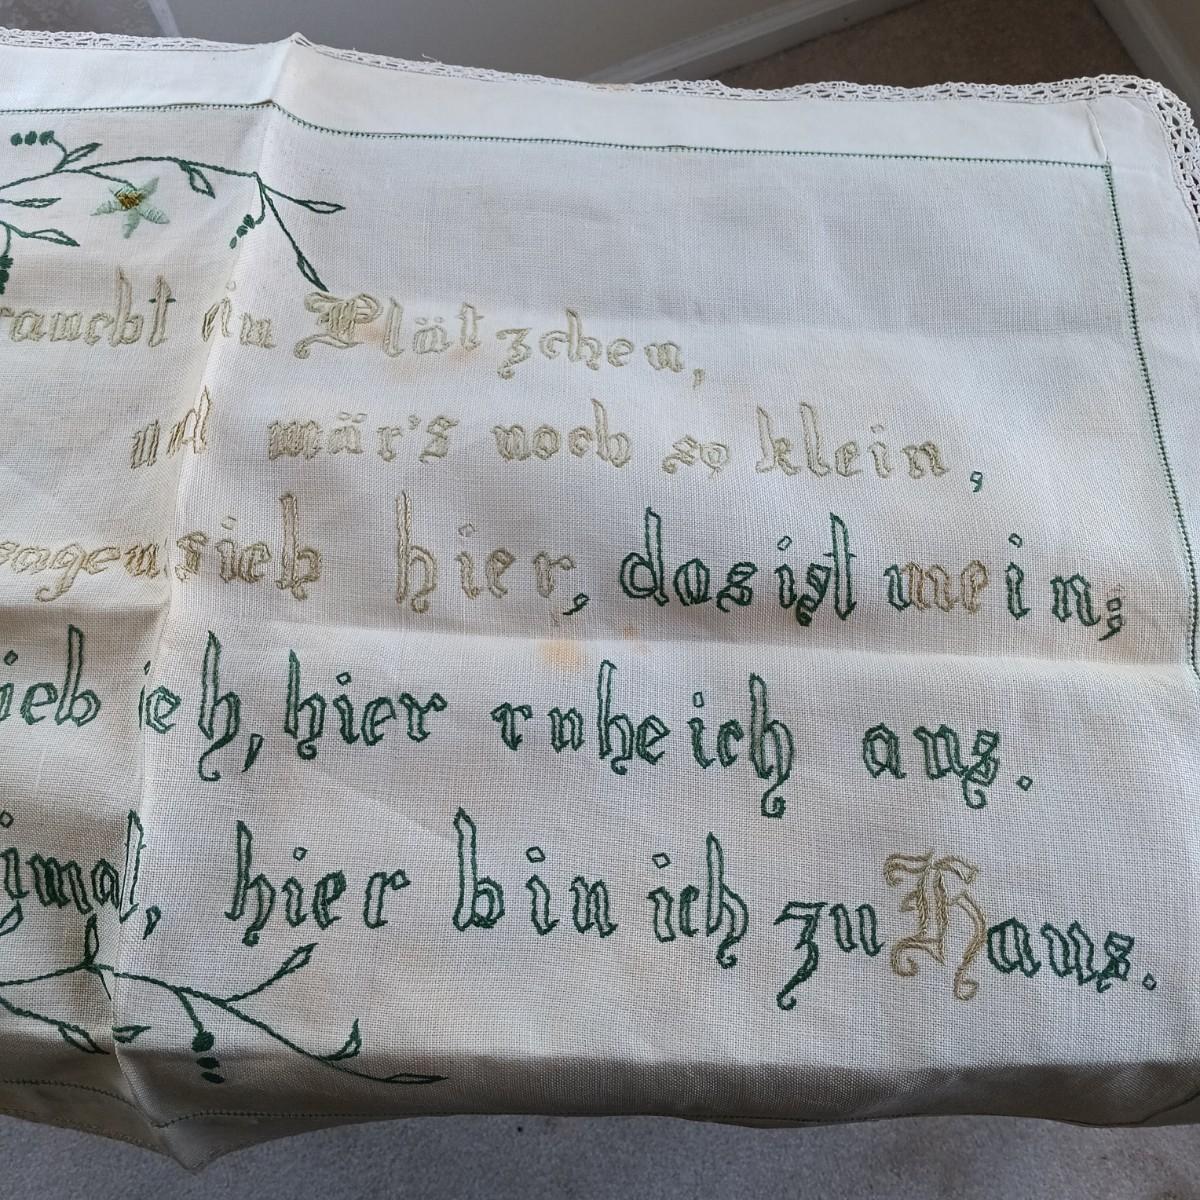 raucht ein Plätzchen,
und wär's noch so klein,
sagen sich hier, das ist mein;
ieb ich, hier ruhe ich aus.
imal, hier bin ich zu Haus.